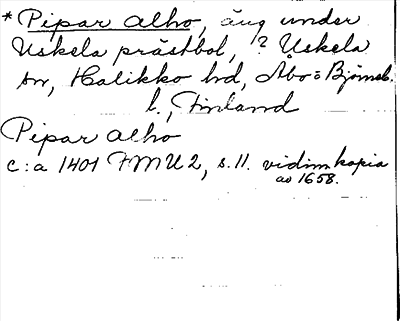 * Pipar alho, äng under
Uskela prästbol, ? Uskela
sn, Halikko hd, Åbo o Björneb.
l., Finland
Pipar alho
c:a 1401 FMU 2, s. 11. vidim kopia
av 1658.